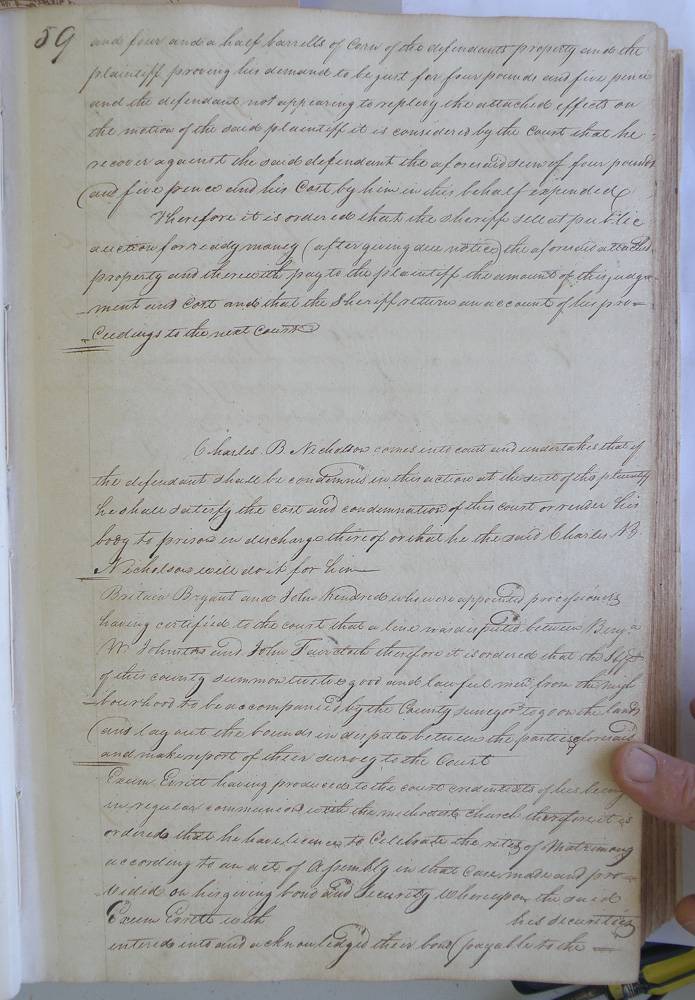 59
and four and a half barrells of Corn of the defendants property and the
plaintiff proving his demand to be just for four pounds and five pence
and the defendant not appearing to replevy the attached effects on
the motion of the said plaintiff it is considered by the Court that he
recover against the said defendant the aforesaid sum of four pounds
and five pence and his Cost by him in this behalf expended
Therefore it is ordered that the sheriff sell at public
auction for ready money (after giving due notice) the aforesaid attached
property and therewith pay to the plaintiff the amount of this judge
ment and Cost and that the Sheriff return an account of his pro=
ceedings to the next Court
Charles B Nicholson comes into court and undertakes that if
the defendant shall be condemned in this action at the suit of the plaintiff
he shall satisfy the cost and condemnation of this court or render his
body to prison in discharge thereof or that he the said Charles B
Nicholson will do it for him
Britain Bryant and John Kindred who were appointed processioners
having certified to the court that a line was disputed between Benja
W Johnston and John Faircloth therefore it is ordered that the Shff
of this county summon twelve good and lawful men from the neigh
bourhood to be accompanied by the County surveyor to go on the lands
and lay out the bounds in dispute between the parties aforesaid
and make report of their survey to the Court
Exum Everitt having produced to the court credentials of his being
in regular communion with the methodist church therefore it is
ordered that he have licence to Celebrate the rites of Matrimony
according to an act of Assembly in that Case made and pro=
vided on his giving bond and Security Whereupon the said
Exum Everitt with his securities
entered into and acknowledged their bond payable to the